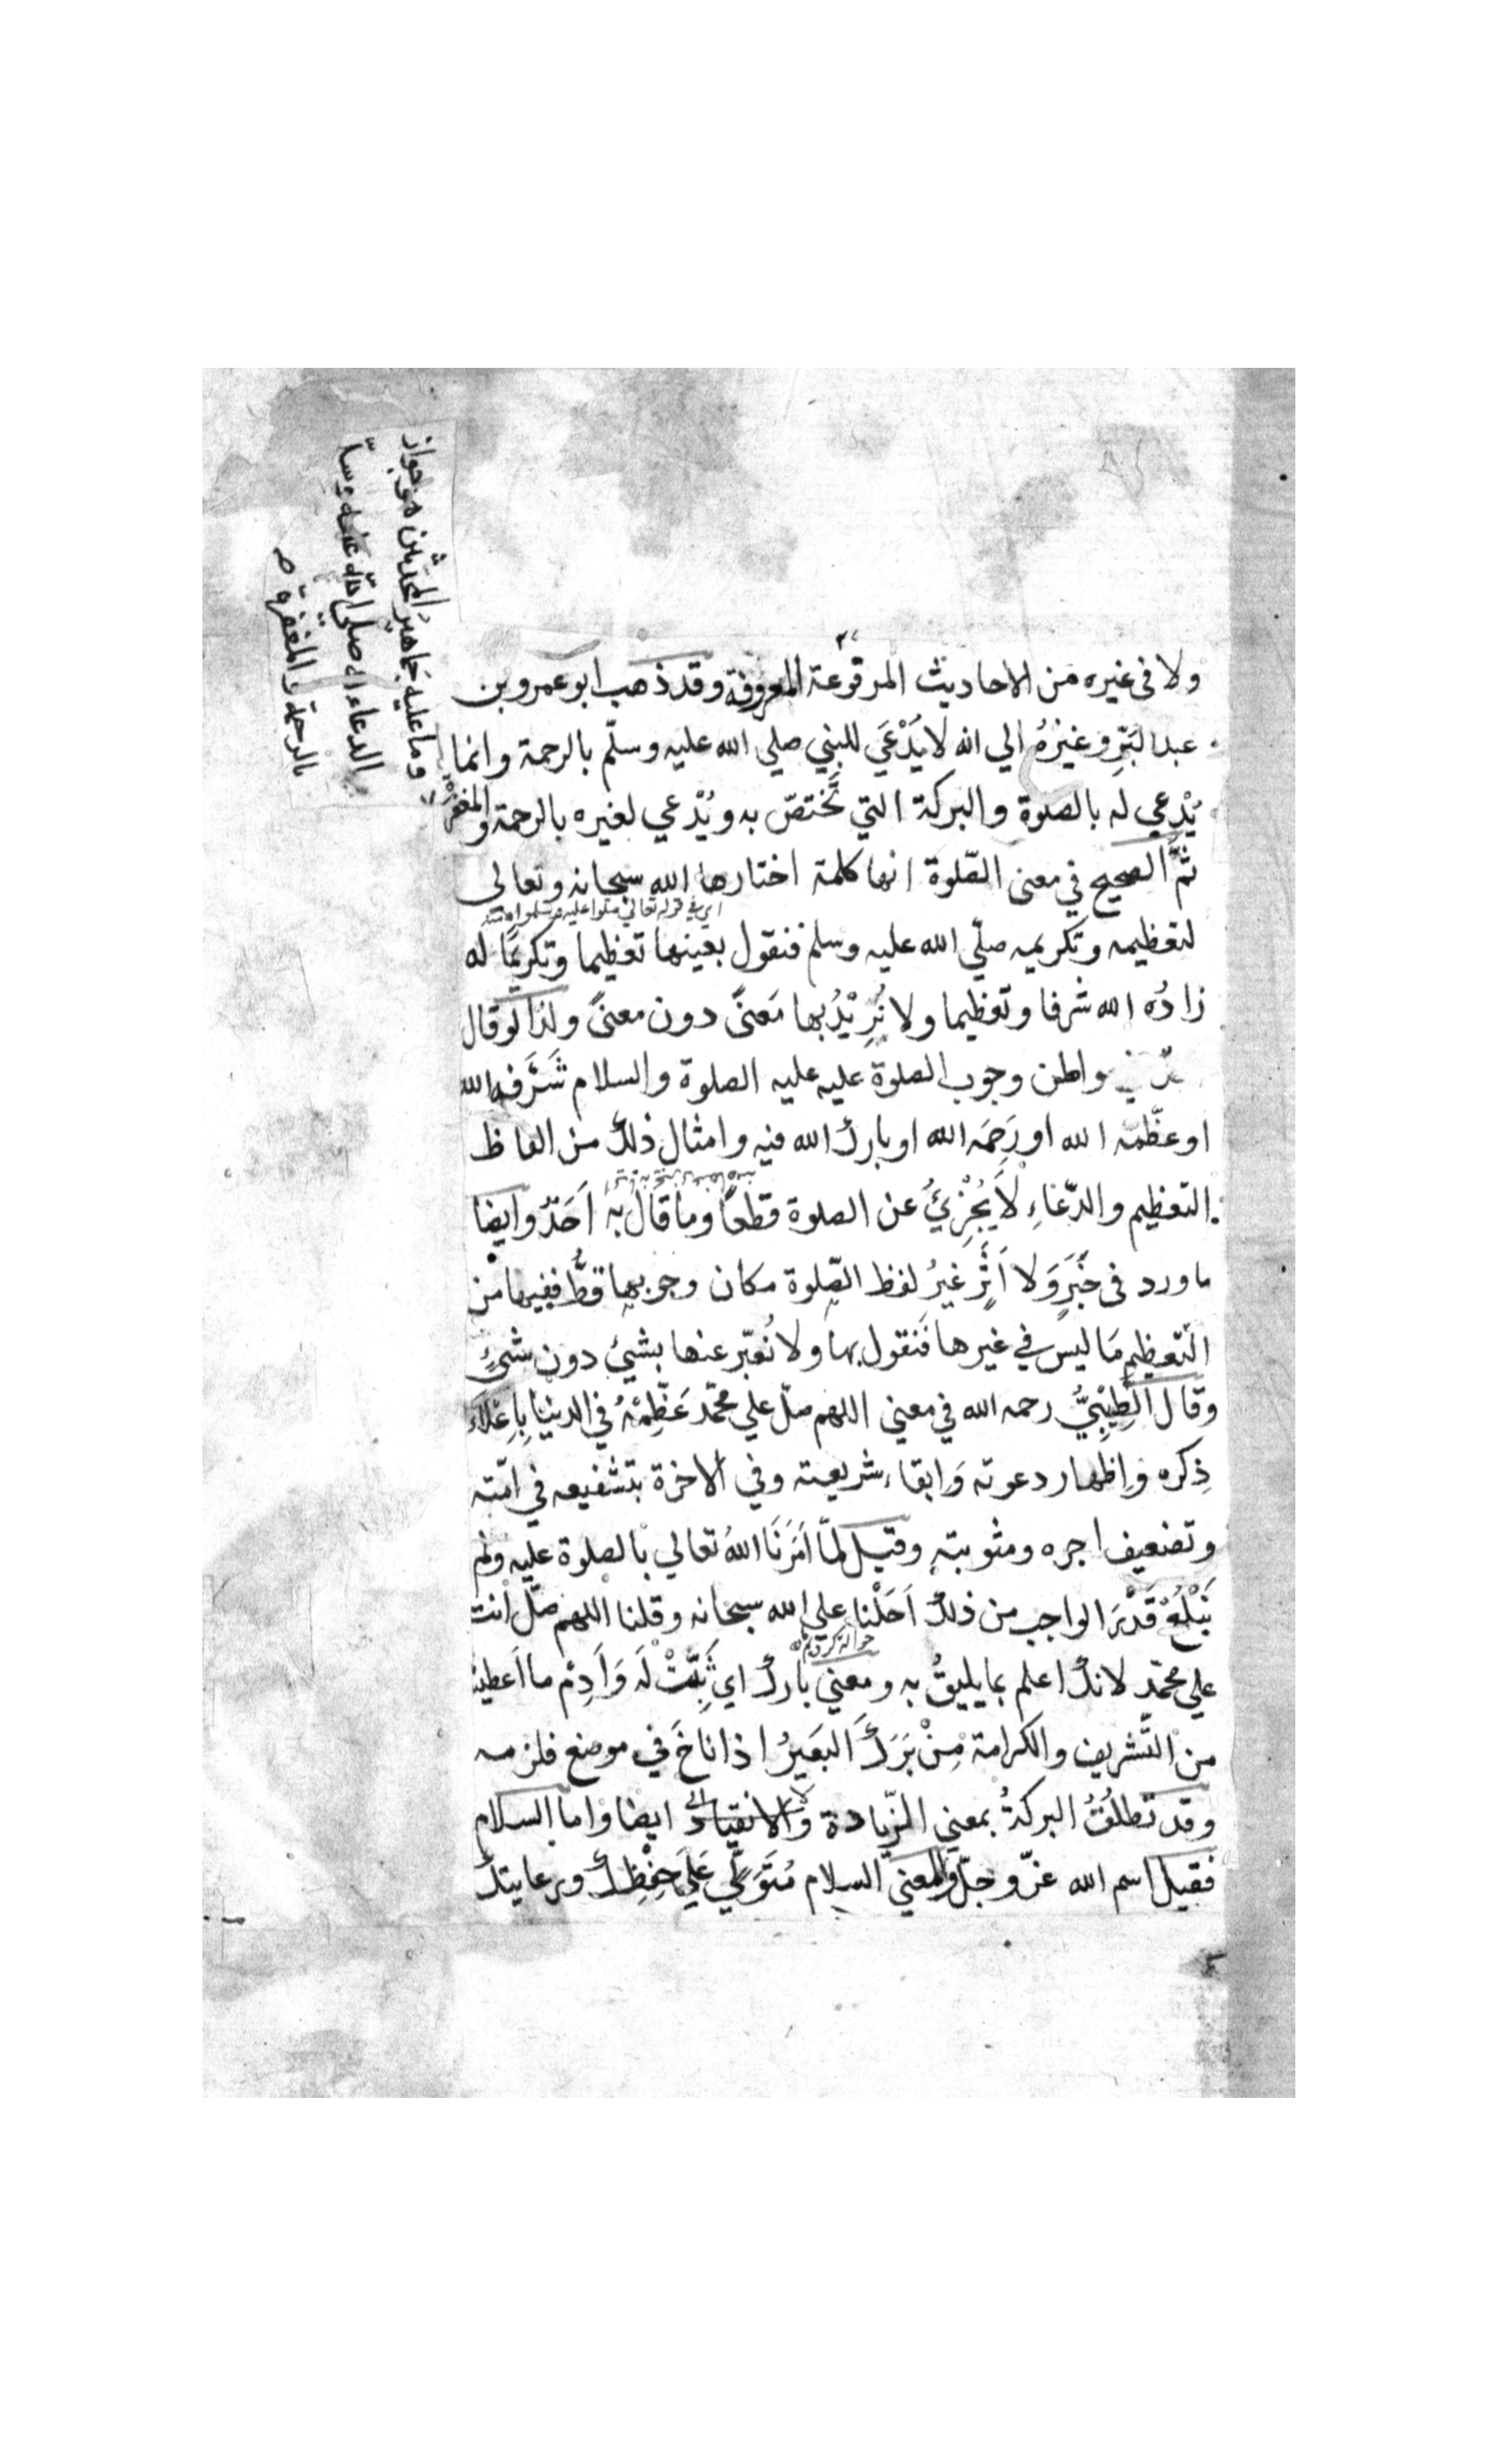 ولا فى غيره من الاحاديث المرفوعة المعروفة وقد ذهب ابو عمرو بن
عبد البَرِّ وغيرُهُ الي انه لا يُدْعَي للنبي صلي الله عليه وسلّم بالرحمة وانما
يُدْعي له بالصلوة والبركة التي تَختصّ به ويُدْعي لغيره بالرحمة والمغفرة
ثمَّ الصحيح في معنى الصّلوة انها كلمة اختارها الله سبحانه وتعالى
اي في قوله تعالي صلوا عليه وسلموا
لتعظيمه وتكريمه صلّي الله عليه وسلم فنقول بعينها تعظيما وتكريمًا له
زادُه الله شرفا وتعظيما ولا نُرِيْدُ بها مَعنىً دون معنىً ولذا لو قال
واطن وجوب الصلوة عليه عليه الصلوة والسلام شَرَّفه الله
او عظّمه الله او رَحِمَه الله او بارك الله فيه وامثال ذلك من الفاظ
التعظيم والدّعَاءِ لَا يُجْزِئُ عن الصلوة قطعًا وما قال به اَحَدٌ وايضا
ما ورد فى خَبَرٍ وَلا اَثَرٍ غيرُ لفظ الصّلوة مكان وجوبها قطُّ ففيها من
التعظيم مَا ليس في غيرها فَنقول بها ولا نُعبّر عنها بشيئ دون شيئٍ
وقال الطِّيْبِيُّ رحمه الله في معني اللهم صلّ علي محمّد عَظِّمْهُ في الدنيا بِاِعْلَاءِ
ذِكره واِظهار دعوته وَابقاء شريعته وفي الاخرة بتشفيعه في امّته
وتضعيف اجره ومثوبته وقيل لمّا اَمَرَنَا اللهُ تعالي بالصلوة عليه ولم
نَبْلُغْ قَدْرَ الواجب من ذلك اَحَلْنا علي الله سبحانه وقلنا اللهم صلّ انت
حواله كرديم
علي محمّدٍ لانك اعلم بما يليقُ به ومعني بارك اي ثَبِّتْ لَه وَاَدِمْ ما اَعطيت
من التّشريف والكرامة مِنْ بَرَكَ البَعَيرُ اذا ناخَ في موضع فلزمه
وقد تُطلَقُ البركةُ بمعني الزّيادة والانقياد ايضا واما السلام
فقيل اسم الله عزّ وجلّ والمعني السلام مُتَوَلّي عَلي حِفْظِكَ ورعايتك
وما عليه جماهير المحدّثين هو جواز
الدعاء له صلى الله عليه وسلّم
بالرحمة والمغفرة